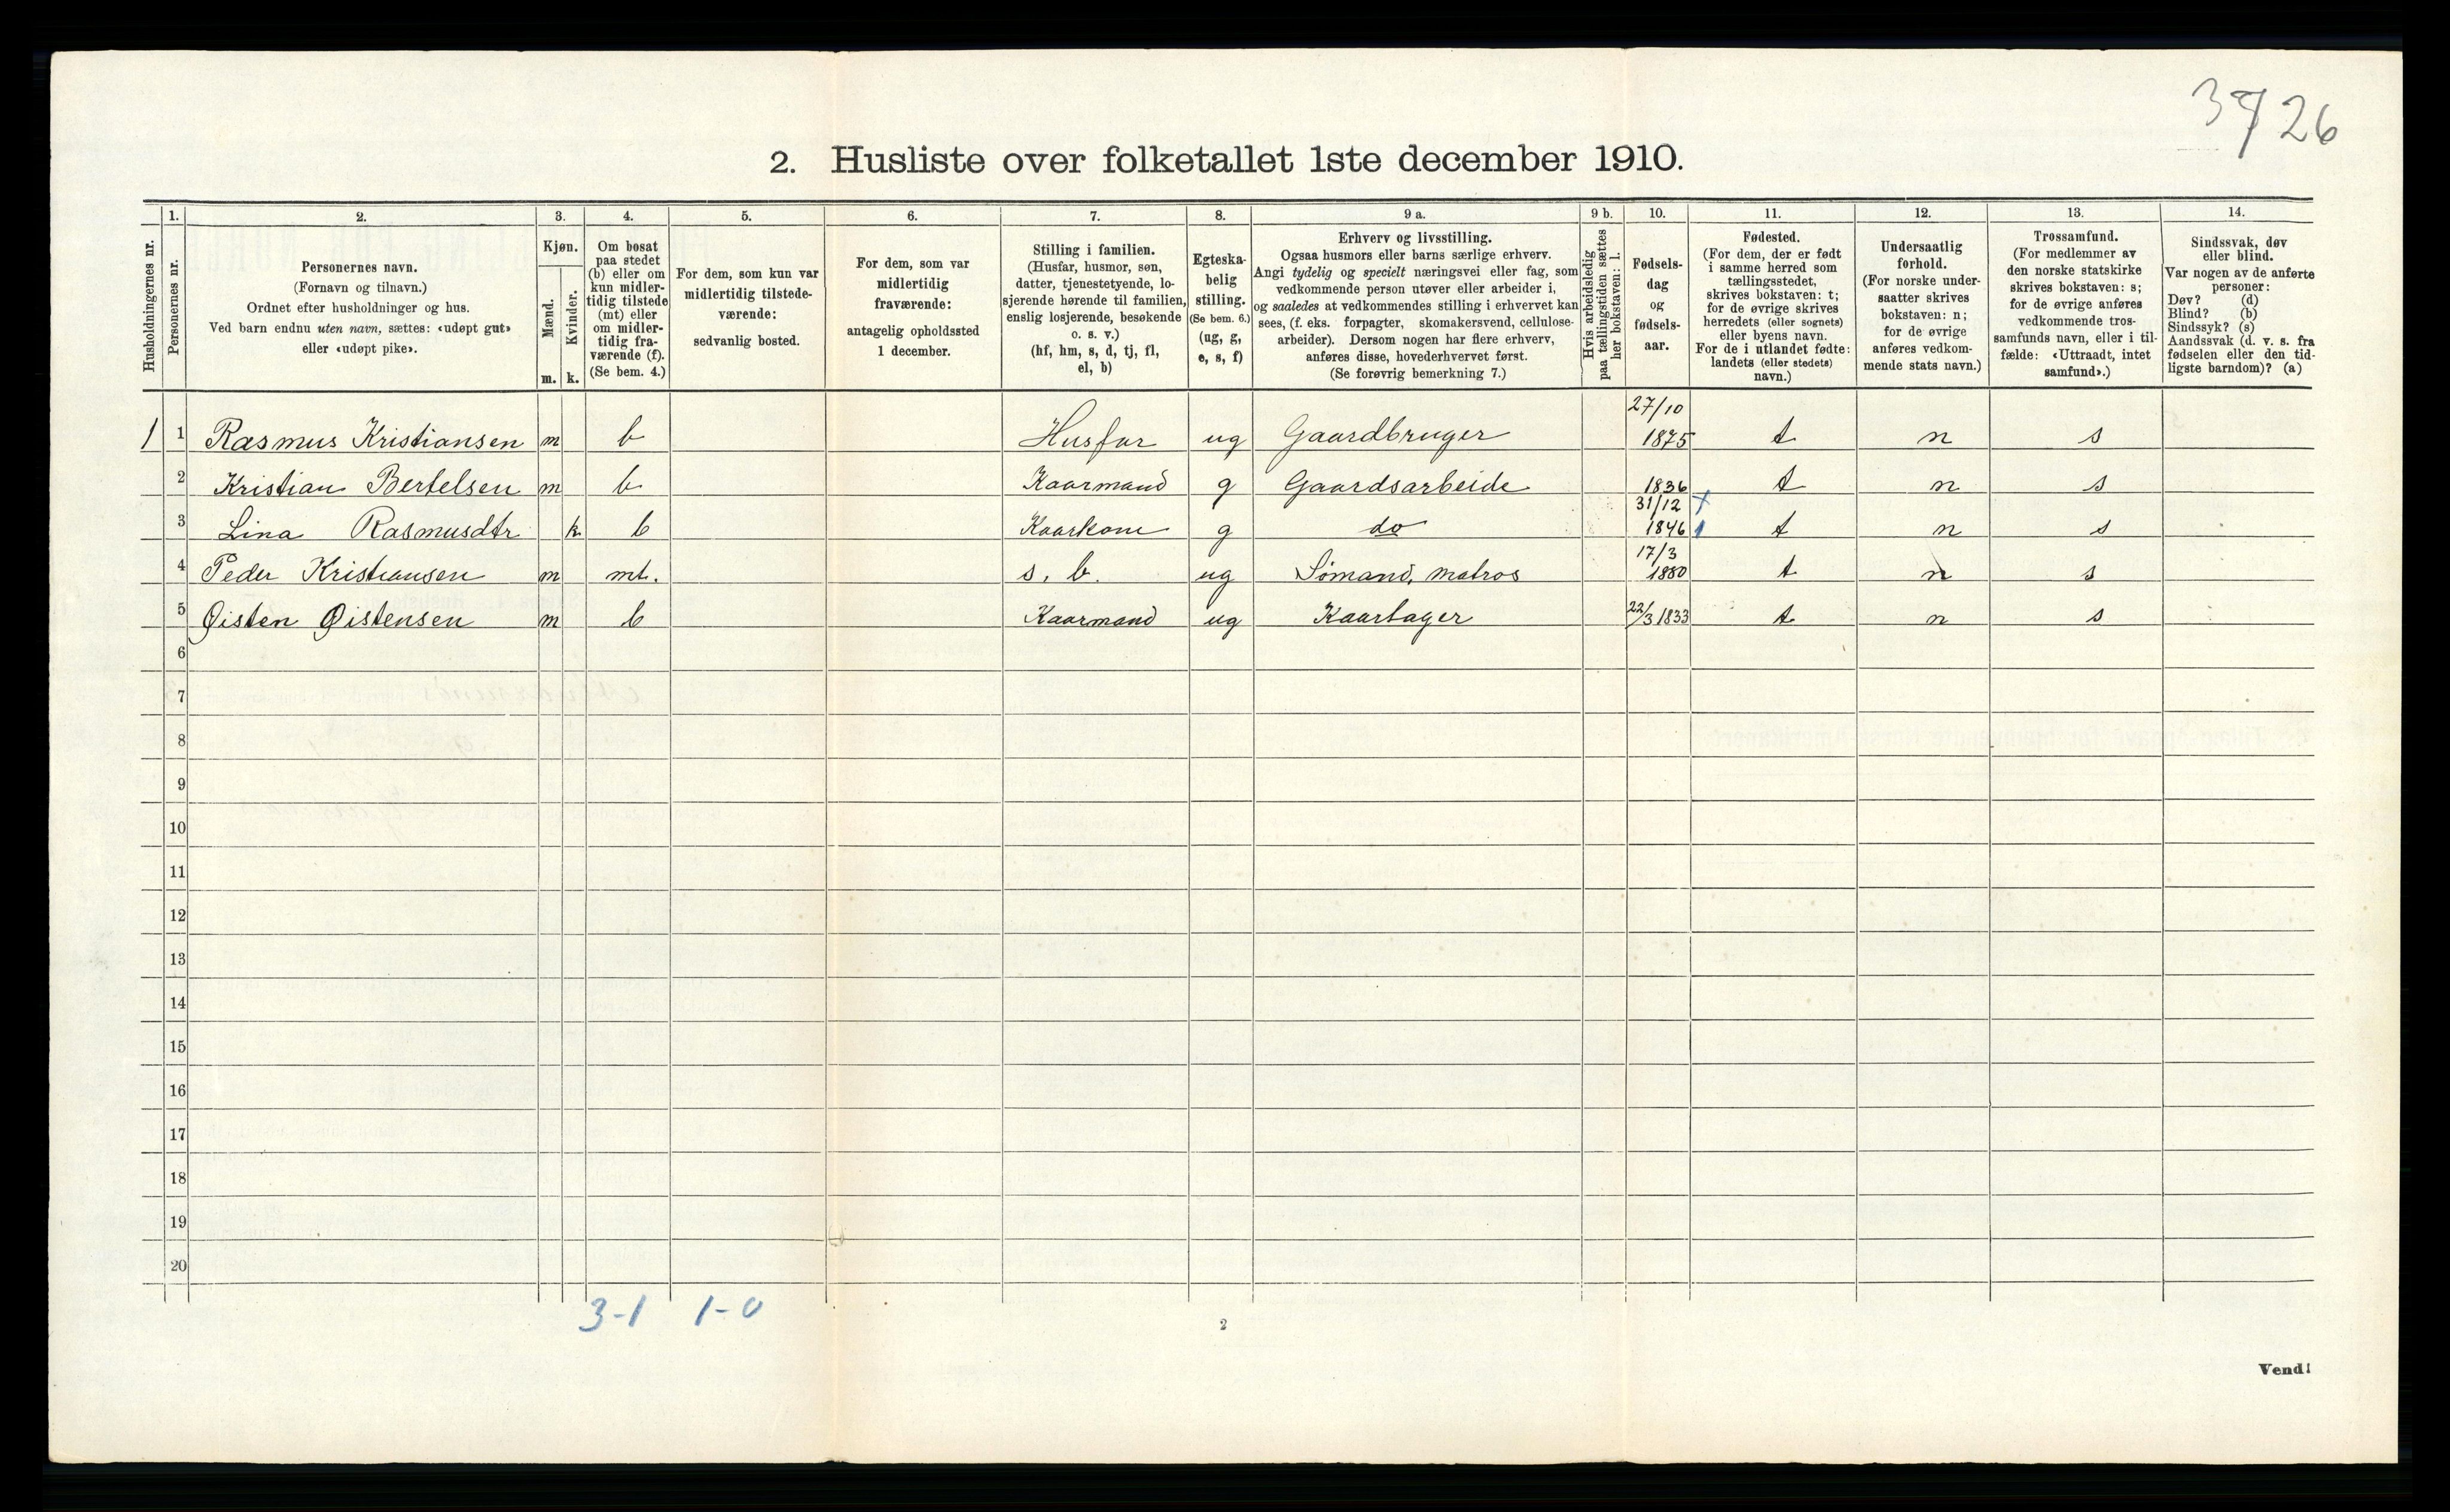 37 26
2. Husliste over folketallet 1ste december 1910.
1. 2. 3. 4. 5. 6. 7. 8. 9 a. 9 b. 10. 11. 12. 13. 14.
Husholdningernes nr.
Personernes nr.
Personernes navn.
(Fornavn og tilnavn.)
Ordnet efter husholdninger og hus.
Ved barn endnu uten navn, sættes: «udøpt gut»
eller «udøpt pike».
Kjøn.
Mænd.
Kvinder.
m. k.
Om bosat
paa stedet
(b) eller om
kun midler-
tidig tilstede
(mt) eller
om midler-
tidig fra-
værende (f).
(Se bem. 4.)
For dem, som kun var
midlertidig tilstede-
værende:
sedvanlig bosted.
For dem, som var
midlertidig
fraværende:
antagelig opholdssted
1 december.
Stilling i familien.
(Husfar, husmor, søn,
datter, tjenestetyende, lo-
sjerende hørende til familien,
enslig losjerende, besøkende
o. s. v.)
(hf, hm, s, d, tj, fl,
el, b)
Egteska-
belig
stilling.
(Se bem. 6.)
(ug, g,
e, s, f)
Erhverv og livsstilling.
Ogsaa husmors eller barns særlige erhverv.
Angi tydelig og specielt næringsvei eller fag, som
vedkommende person utøver eller arbeider i,
og saaledes at vedkommendes stilling i erhvervet kan
sees, (f. eks. forpagter, skomakersvend, cellulose-
arbeider). Dersom nogen har flere erhverv,
anføres disse, hovederhvervet først.
(Se forøvrig bemerkning 7.)
Hvis arbeidsledig
paa tællingstiden sættes
her bokstaven: l.
Fødsels-
dag
og
fødsels-
aar.
Fødested.
(For dem, der er født
i samme herred som
tællingsstedet,
skrives bokstaven: t;
for de øvrige skrives
herredets (eller sognets)
eller byens navn.
For de i utlandet fødte:
landets (eller stedets)
navn.)
Undersaatlig
forhold.
(For norske under-
saatter skrives
bokstaven: n;
for de øvrige
anføres vedkom-
mende stats navn.)
Trossamfund.
(For medlemmer av
den norske statskirke
skrives bokstaven: s;
for de øvrige anføres
vedkommende tros-
samfunds navn, eller i til-
fælde: «Uttraadt, intet
samfund».)
Sindssvak, døv
eller blind.
Var nogen av de anførte
personer:
Døv? (d)
Blind? (b)
Sindssyk? (s)
Aandssvak (d. v. s. fra
fødselen eller den tid-
ligste barndom)? (a)
1 1 Rasmus Kristiansen m b Husfar ug Gaardbruger 27/10 1875 t n s
2 Kristian Bertelsen m b Kaarmand g Gaardsarbeide 1836 t n s
3 Lina Rasmusdtr k b Kaarkone g do 31/12 1846 t n s
4 Peder Kristiansen m mt. s. b. ug Sömand, matros 17/3 1880 t n s
5 Øisten Øistensen m b Kaarmand ug Kaartager 22/3 1833 t n s
6
7
8
9
10
11
12
13
14
15
16
17
18
19
20
3-1 1-0
2
Vend!